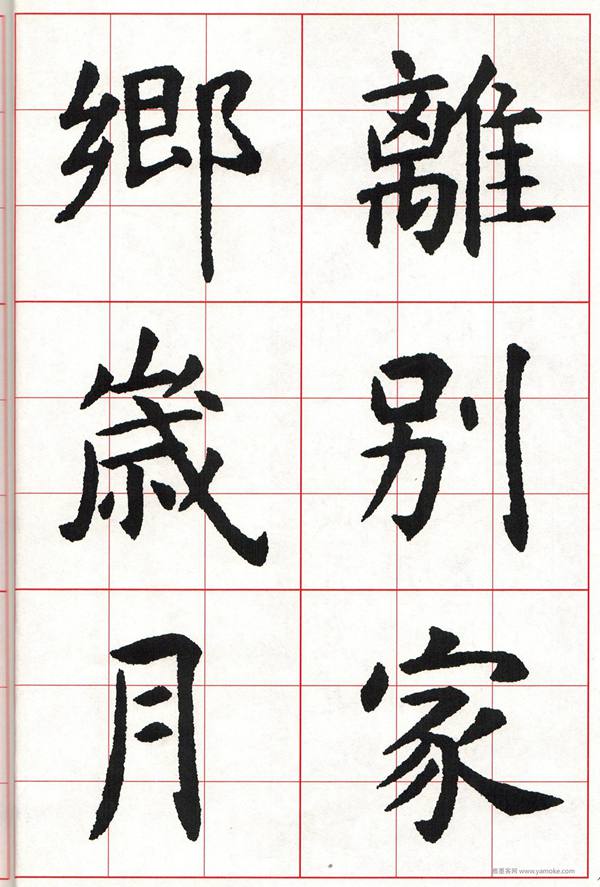 離別家
鄉歳月
雅墨客网 www.yamoke.com